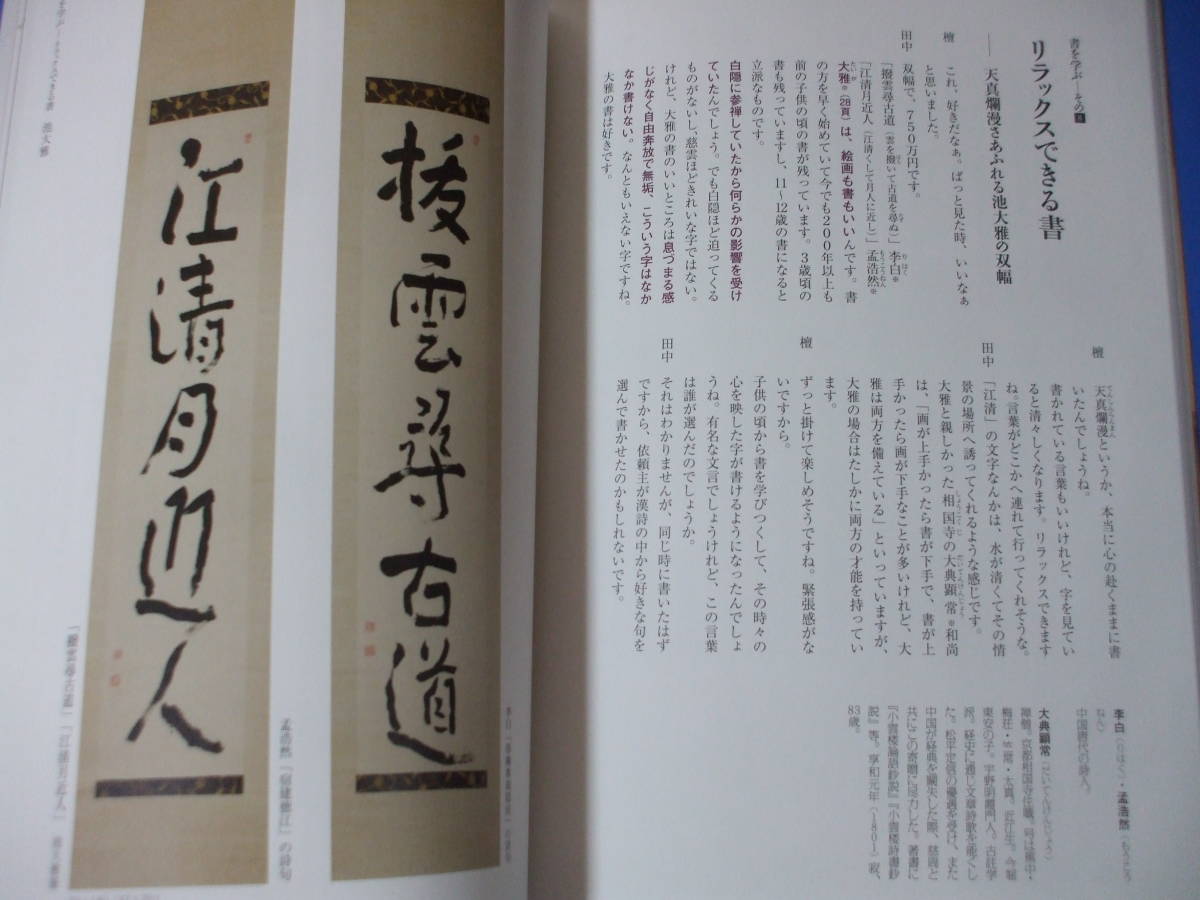 書を学ぶ―その
リラックスできる書
―― 天真爛漫さあふれる池大雅の双幅
檀 これ、好きだなぁ。ぱっと見た時、いいなぁ
と思いました。
田中 双幅で、750万円です。
「撥雲尋古道(雲を撥いて古道を尋ぬ)」李白※
「江清月近人(江清くして月人に近し)」孟浩然※
大雅※(28頁)は、絵画も書もいいんです。書
の方を早く始めていて今でも200年以上も
前の子供の頃の書が残っています。3歳頃の
書も残っていますし、11~12歳の書になると
立派なものです。
白隠に参禅していたから何らかの影響を受け
ていたんでしょう。でも白隠ほど迫ってくる
ものがないし、慈雲ほどきれいな字ではない。
けれど、大雅の書のいいところは息づまる感
じがなく自由奔放で無垢、こういう字はなか
なか書けない。なんともいえない字ですね。
大雅の書は好きです。
檀 天真爛漫というか、本当に心の赴くままに書
いたんでしょうね。
書かれている言葉もいいけれど、字を見てい
ると清々しくなります。リラックスできます
ね。言葉がどこかへ連れて行ってくれそうな。
田中 「江清」の文字なんかは、水が清くてその情
景の場所へ誘ってくれるような感じです。
大雅と親しかった相国寺の大典顕常※和尚
は、「画が上手かったら書が下手で、書が上
手かったら画が下手なことが多いけれど、大
雅は両方を備えている」といっていますが、
大雅の場合はたしかに両方の才能を持ってい
ます。
檀 ずっと掛けて楽しめそうですね。緊張感がな
いですから。
子供の頃から書を学びつくして、その時々の
心を映した字が書けるようになったんでしょ
うね。有名な文言でしょうけれど、この言葉
は誰が選んだのでしょうか。
田中 それはわかりませんが、同じ時に書いたはず
ですから、依頼主が漢詩の中から好きな句を
選んで書かせたのかもしれないです。
李白(りはく)・孟浩然(もうこうね
ねん)
中国唐代の詩人。
大典顕常(だいてんけんじょう)
禅僧。京都相国寺住職。
東安の子。宇野明霞門人。古註学
派。経史に通じ文章詩歌を能くし
た。松平定信の優遇を受け、また
中国が経典を闕失した際、慈周と
共にこの寄贈に尽力した。著書に
『小雲棲論語鈔説』『小雲棲詩書鈔
説』等。享和元年(1801)寂、
83歳。
撥雲尋古道
江清月近人
孟浩然「宿建徳江」の詩句
「撥雲尋古道」「江清月近人」
リラックスできる書 池大雅